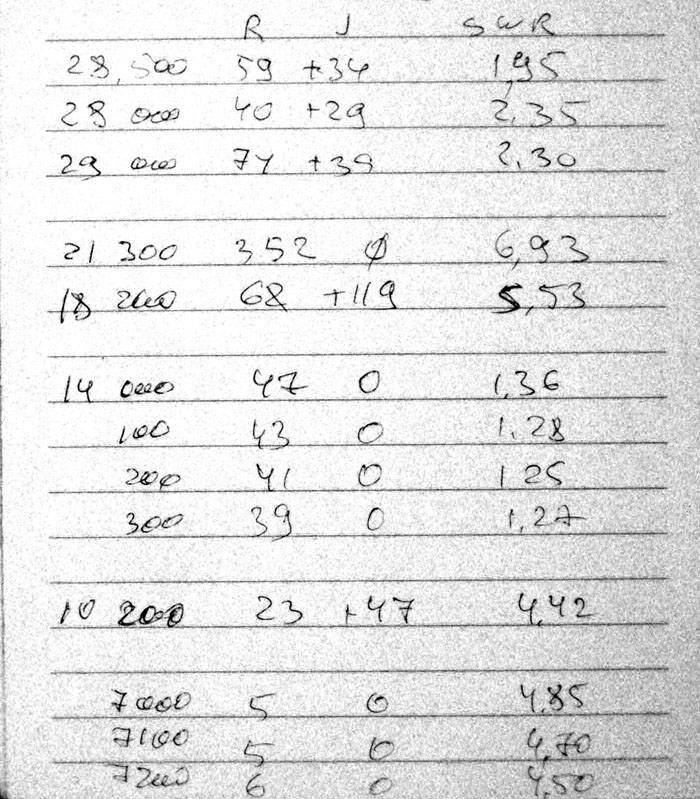 R J SWR
28,500 59 +34 1,95
28 000 40 +29 2,35
29 000 74 +39 2,30
21 300 352 Ø 6,93
18 200 68 +119 5,53
14 000 47 0 1,36
100 43 0 1,28
200 41 0 1 25
300 39 0 1,27
10 200 23 +47 4,42
7000 5 0 4,85
7100 5 0 4,70
7200 6 0 4,50